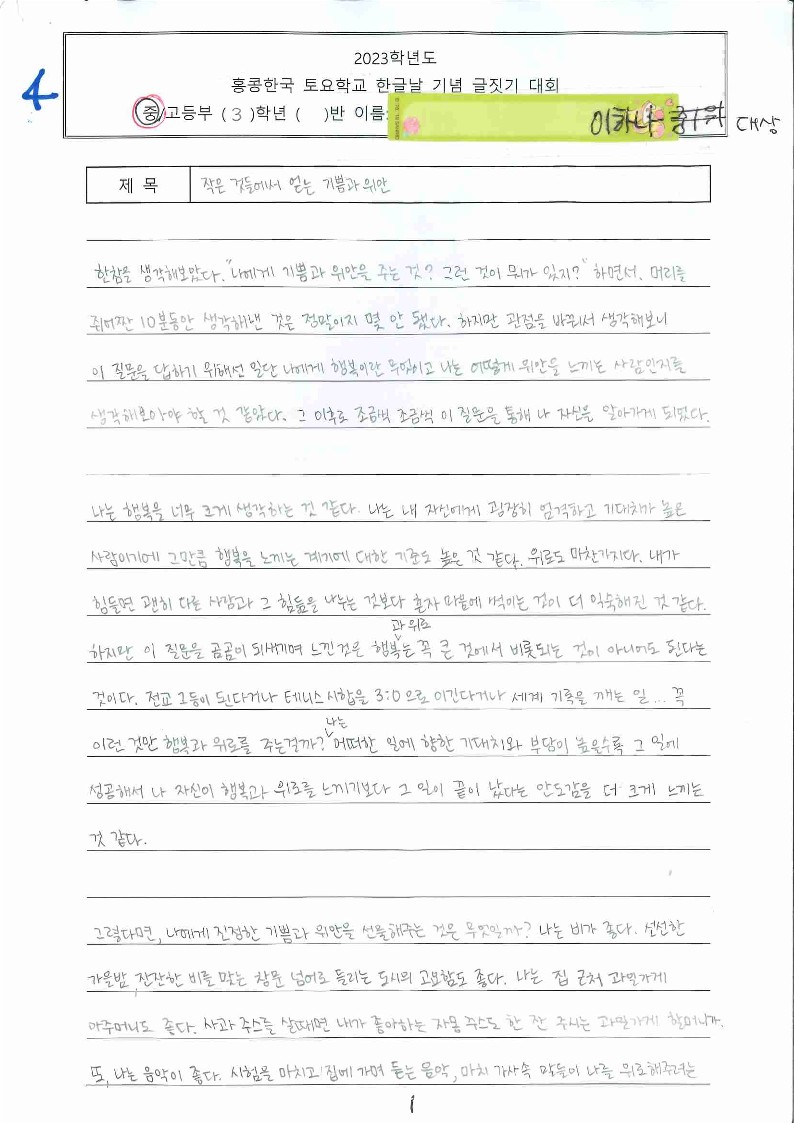 4
2023학년도
홍콩한국 토요학교 한글날 기념 글짓기 대회
중고등부 ( 3 )학년 (    )반 이름: 이하나 대상
제 목 작은 것들에서 얻는 기쁨과 위안
한참을 생각해보았다. "나에게 기쁨과 위안을 주는 것? 그런 것이 뭐가 있지?" 하면서. 머리를
쥐어짠 10분동안 생각해낸 것은 정말이지 몇 안 됐다. 하지만 관점을 바꿔서 생각해보니
이 질문을 답하기 위해선 일단 나에게 행복이란 무엇이고 나는 어떻게 위안을 느끼는 사람인지를
생각해보아야 할 것 같았다. 그 이후로 조금씩 조금씩 이 질문을 통해 나 자신을 알아가게 되었다.
나는 행복을 너무 크게 생각하는 것 같다. 나는 내 자신에게 굉장히 엄격하고 기대치가 높은
사람이기에 그만큼 행복을 느끼는 계기에 대한 기준도 높은 것 같다. 위로도 마찬가지다. 내가
힘들면 괜히 다른 사람과 그 힘듦을 나누는 것보다 혼자 마음에 썩이는 것이 더 익숙해진 것 같다.
하지만 이 질문을 곰곰이 되새기며 느낀것은 행복과 위로는 꼭 큰 것에서 비롯되는 것이 아니어도 된다는
것이다. 전교 1등이 된다거나 테니스 시합을 3:0으로 이긴다거나 세계 기록을 깨는 일... 꼭
이런 것만 행복과 위로를 주는걸까? 나는 어떠한 일에 향한 기대치와 부담이 높을수록 그 일에
성공해서 나 자신이 행복과 위로를 느끼기보다 그 일이 끝이 났다는 안도감을 더 크게 느끼는
것 같다.
그렇다면, 나에게 진정한 기쁨과 위안을 선물해주는 것은 무엇일까? 나는 비가 좋다. 선선한
가을밤, 잔잔한 비를 맞는 창문 넘어로 들리는 도시의 고요함도 좋다. 나는 집 근처 과일가게
아주머니도 좋다. 사과 주스를 살때면 내가 좋아하는 자몽 주스도 한 잔 주시는 과일가게 할머니가.
또, 나는 음악이 좋다. 시험을 마치고 집에 가며 듣는 음악, 마치 가사속 말들이 나를 위로해주려는
1